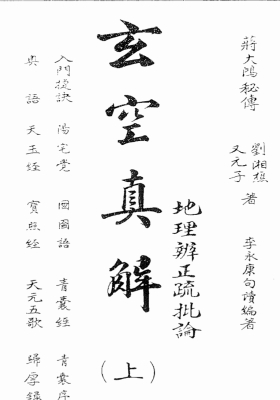 蔣大鴻秘傳
劉湘樵
又元子
著
李永康句讀編著
地理辨正疏批論
玄空真解
(上)
入門捷訣 陽宅覺 囦圖語 青囊經 青囊序
奥語 天玉經 寶照經 天元五歌 歸厚錄